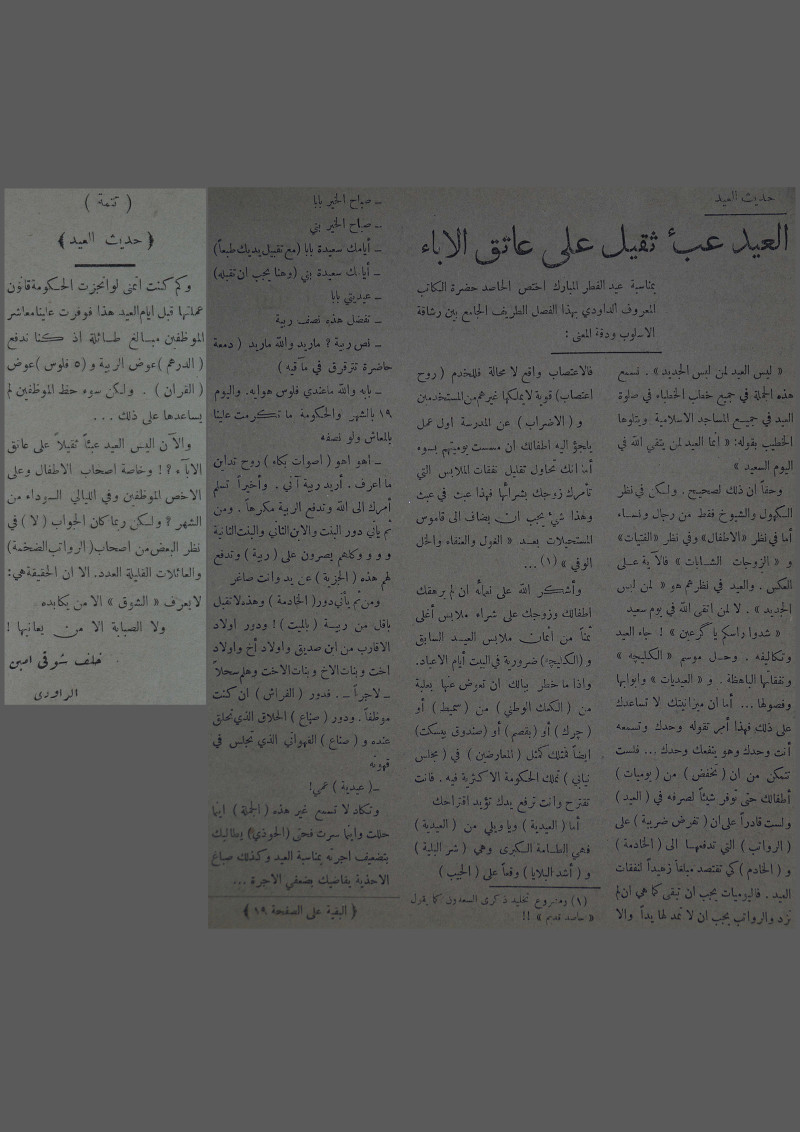 حديث العيد
العيد عبء ثقيل على عاتق الاباء
بمناسبة عيد الفطر المبارك اختص الحاصد حضرة الكاتب
المعروف الداودي بهذا الفصل الطريف الجامع بين رشاقة
الاسلوب ودقة المعنى :
« ليس العيد لمن لبس الجديد » . نسمع
هذه الجملة في جميع خطب الخطباء في صلوة
العيد في جميع المساجد الاسلامية ويتلوها
الخطيب بقوله : « انما العيد لمن يتقي الله في
اليوم السعيد »
وحقاً ان ذلك لصحيح . ولكن في نظر
الكهول والشيوخ فقط من رجال ونساء
أما في نظر «الاطفال» وفي نظر «الفتيات»
و « الزوجات الشابات » فالآية على
العكس . والعيد في نظرهم هو « لمن لبس
الجديد » . لا لمن اتقى الله في يوم سعيد
« شدوا راسكم يا گرعين » ! جاء العيد
وتكاليفه . وحل موسم « الكليجه »
ونفقاتها الباهظة . و « العيديات » وابوابها
وفصولها ... أما ان ميزانيتك لا تساعدك
على ذلك فهذا أمر تقوله وحدك وتسمعه
أنت وحدك وهو ينفعك وحدك ... فلست
تتمكن من ان ( تخفض ) من ( يوميات )
أطفالك حتى توفر شيئاً لصرفه في ( العيد )
ولست قادراً على ان ( تفرض ضريبة ) على
( الرواتب ) التي تدفعها الى ( الخادمة )
و ( الخادم ) كي تقتصد مبلغاً زهيداً لنفقات
العيد . فاليوميات يجب ان تبقى كما هي ان لم
تزد والرواتب يجب ان لا تمد لها يداً والا
فالاعتصاب واقع لا محالة فللخدم ( روح
اعتصاب ) قوية لا يملكها غيرهم من المستخدمين
و ( الاضراب ) عن المدرسة اول عمل
يلجؤ اليه اطفالك ان مسست يوميتهم بسوء
أما انك تحاول تقليل نفقات الملابس التي
تأمرك زوجك بشرائها فهذا عبث في عبث
وهذا شيء يجب ان يضاف الى قاموس
المستحيلات بعد « الغول والعنقاء والخل
الوفي » (١) ...
وأشكر الله على نعمائه ان لم يرهقك
اطفالك وزوجك على شراء ملابس أغلى
ثمناً من أثمان ملابس العيد السابق
و (الكليجه) ضرورية في البيت أيام الاعياد.
واذا ما خطر ببالك ان تعوض عنها بعلبة
من ( الكعك الوطني ) من ( سميط ) أو
( چرك ) أو ( بقصم ) أو ( صندوق بيسكت )
ايضاً فمثلك كمثل ( المعارضين ) في ( مجلس
نيابي ) تملك الحكومة الاكثرية فيه . فانت
تقترح وانت ترفع يدك تؤيد اقتراحك
أما ( العيدية ) ويا ويلي من ( العيدية )
فهي الطامة الكبرى وهي ( شر البلية )
و ( أشد البلايا ) وقعاً على ( الجيب )
(١) ومشروع تخليد ذكرى السعدون كما يقول
« حاصد قديم » !!
ــ صباح الخير بابا
ــ صباح الخير بني
ــ أيامك سعيدة بابا (مع تقبيل يديك طبعاً)
ــ أيامك سعيدة بني (وهنا يجب ان تقبله)
ــ عيديتي بابا
ــ تفضل هذه نصف ربية
ــ نص ربية ؟ ماريد والله ماريد ( دمعة
حاضرة تترقرق في مآقيه )
ــ بابه والله ماعندي فلوس هوايه. واليوم
١٩ بالشهر والحكومة ما تكرمت علينا
بالمعاش ولو نصفه
ــ اهو اهو ( أصوات بكاء ) روح تداين
ما اعرف . أريد ربية آني . وأخيراً تسلم
أمرك الى الله وتدفع الربية مكرهاً . ومن
ثم يأتي دور البنت والابن الثاني والبنت الثانية
و و و وكلهم يصرون على ( ربية ) وتدفع
لهم هذه ( الجزية ) عن يد وانت صاغر
ومن ثم يأتي دور( الخادمة ) وهذه لا تقبل
باقل من ربية ( بالميت ) ! ودور اولاد
الاقارب من ابن صديق واولاد أخ واولاد
اخت وبنات الاخ وبنات الاخت وهلم سحلاً
ــ لا جراً ــ . فدور ( الفراش ) ان كنت
موظفاً . ودور ( صنّاع ) الحلاق الذي تحلق
عنده و ( صناع ) القهواتي الذي تجلس في
قهوته
ــ ( عيدية ) عمي!
وتكاد لا تسمع غير هذه ( الجملة ) اينما
حللت واينما سرت فحتى ( الحوذي ) يطالبك
بتضعيف اجرته بمناسبة العيد وكذلك صباغ
الاحذية يقاضيك بضعفي الاجرة ...
﴿ البقية على الصفحة ١٩ ﴾
( تتمة )
﴿ حديث العيد ﴾
وكم كنت أتمنى لو انجزت الحكومة قانون
عملتها قبل ايام العيد هذا فوفرت علينا معاشر
الموظفين مبالغ طائلة اذ كنا ندفع
( الدرهم ) عوض الربية و ( ٥ فلوس ) عوض
( القران ) . ولكن سوء حظ الموظفين لم
يساعدها على ذلك ...
والآن اليس العيد عبئاً ثقيلاً على عاتق
الاباء ؟ ! وخاصة اصحاب الاطفال وعلى
الاخص الموظفين وفي الليالي السوداء من
الشهر ؟ ولكن ربما كان الجواب ( لا ) في
نظر البعض من اصحاب ( الرواتب الضخمة )
والعائلات القليلة العدد. الا ان الحقيقة هي:
لا يعرف « الشوق » الا من يكابده
ولا الصبابة الا من يعانيها !
خلف شوقي امين
الداودي